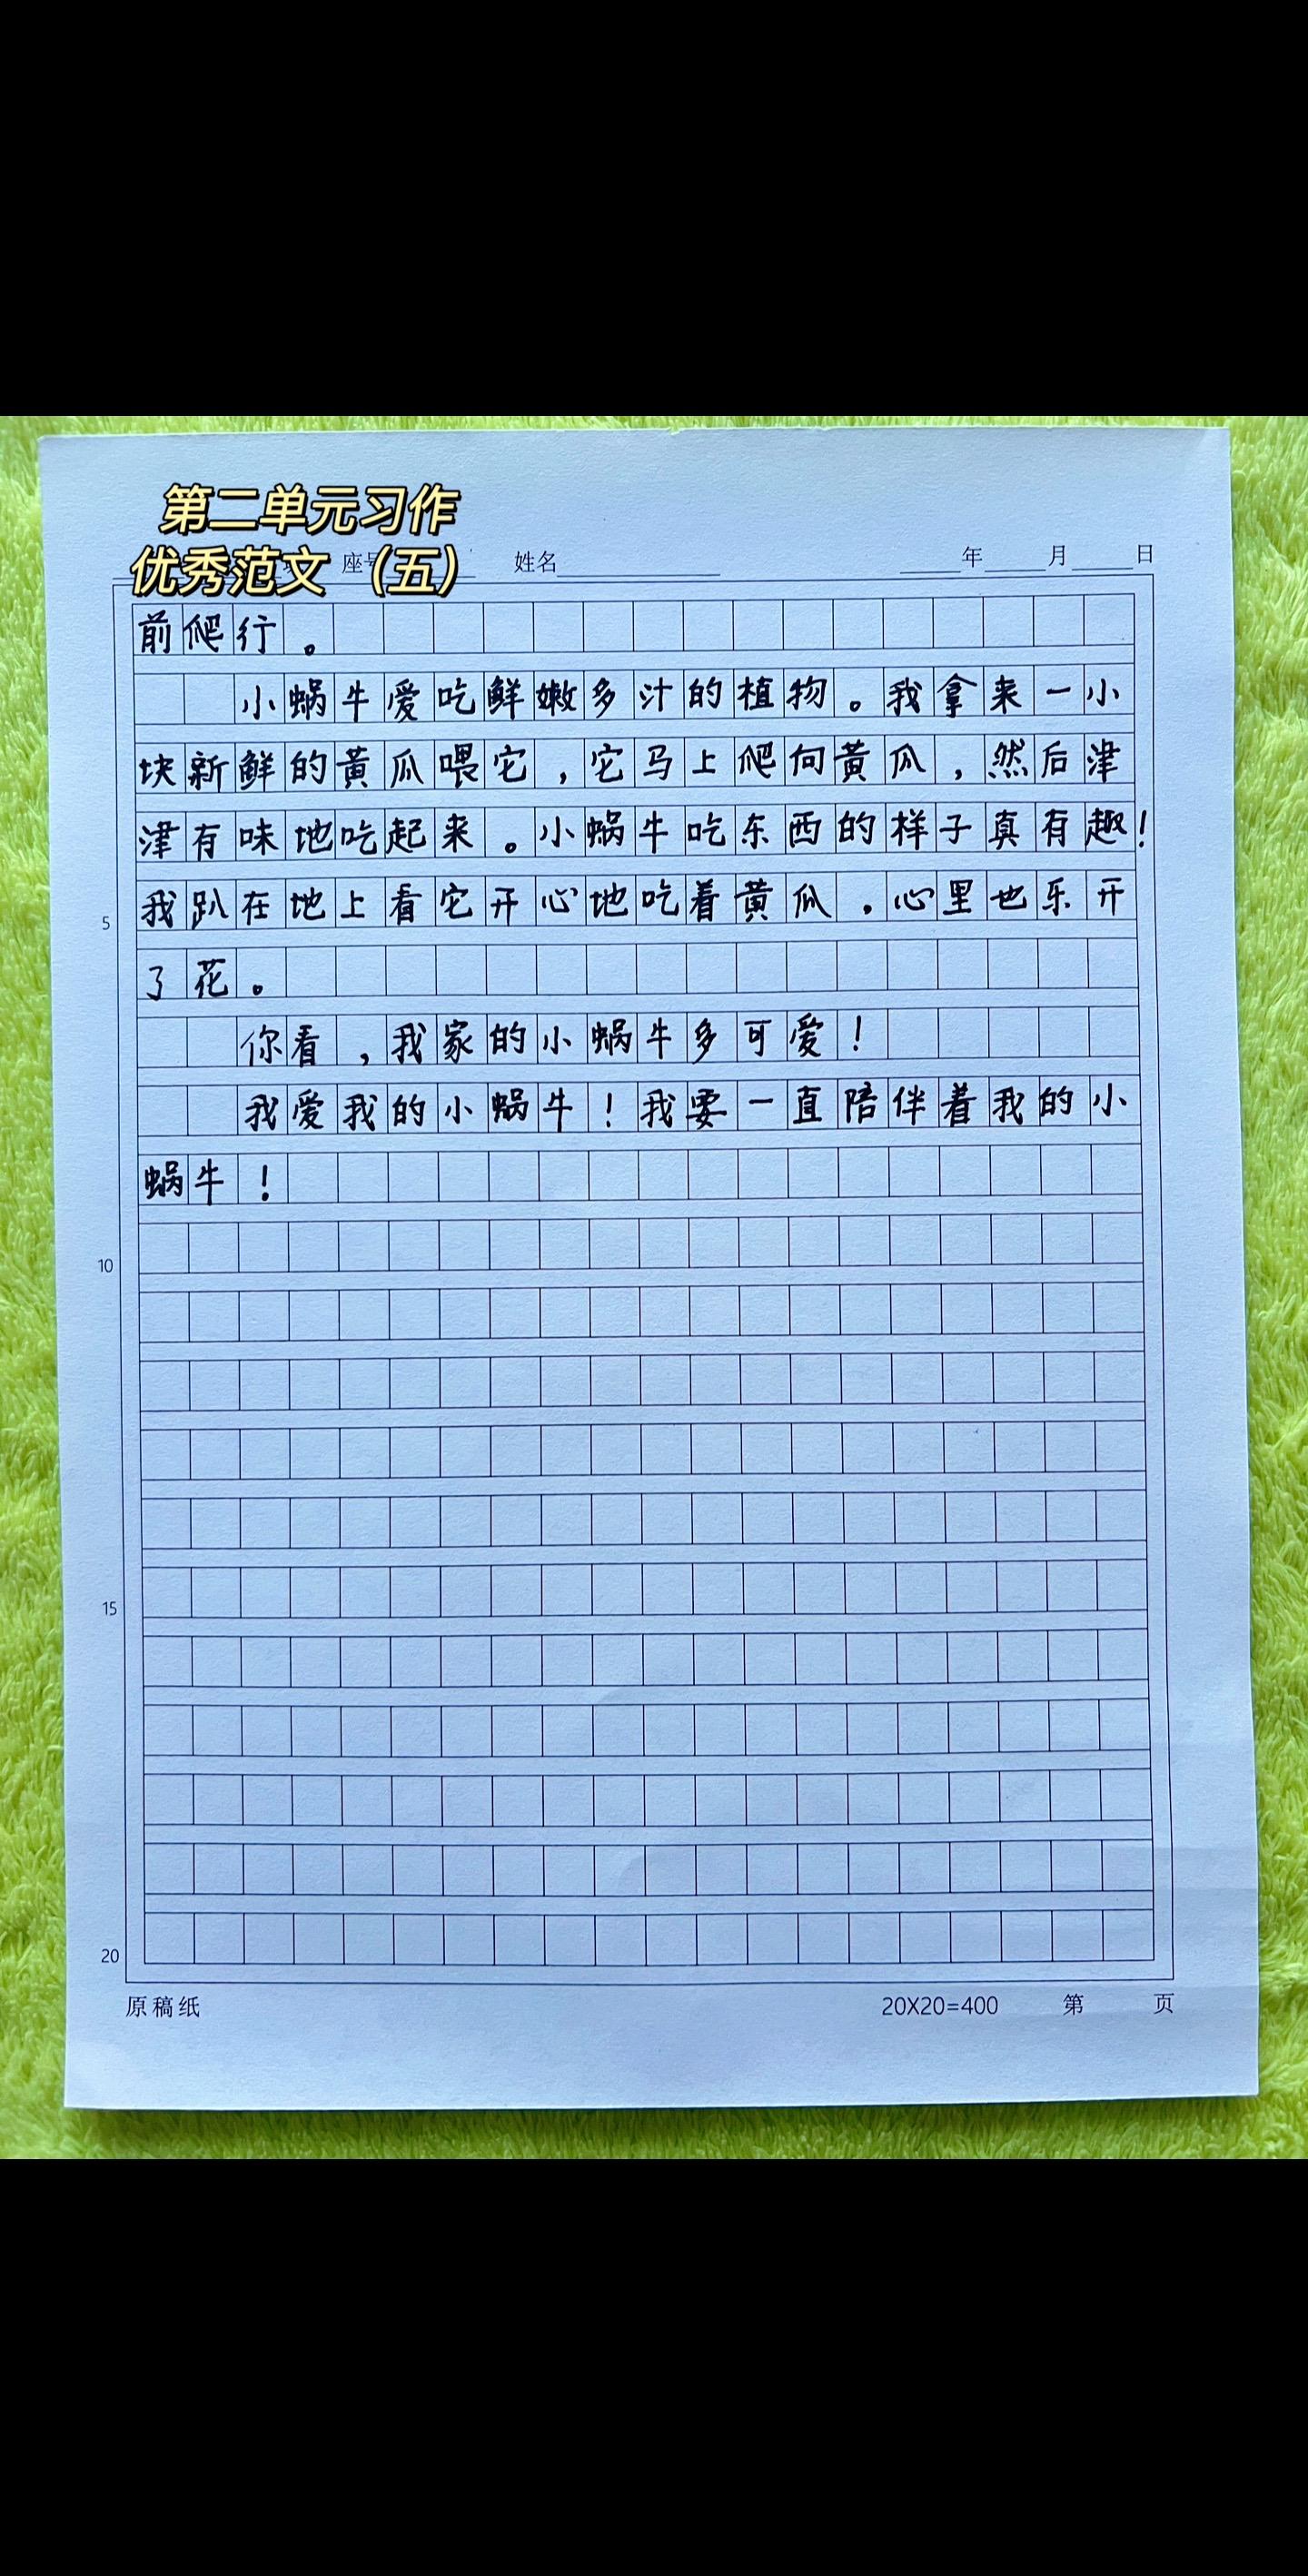 第二单元习作
优秀范文（五）
座号 姓名 年 月 日
前爬行。
小蜗牛爱吃鲜嫩多汁的植物。我拿来一小
块新鲜的黄瓜喂它，它马上爬向黄瓜，然后津
津有味地吃起来。小蜗牛吃东西的样子真有趣！
我趴在地上看它开心地吃着黄瓜．心里也乐开
5
了花。
你看，我家的小蜗牛多可爱！
我爱我的小蜗牛！我要一直陪伴着我的小
蜗牛！
10
15
20
原稿纸 20X20=400 第 页